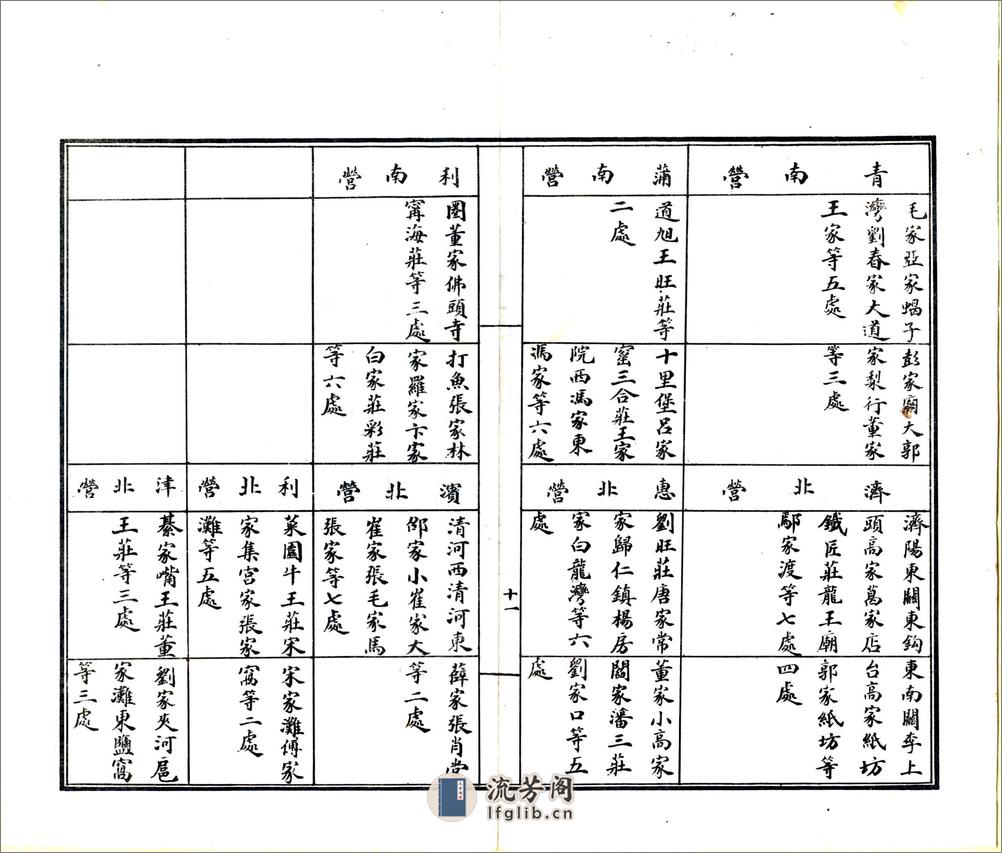 青南營
毛家亞家蝎子
灣劉春家大道
王家等五處
彭家廟大郭
家梨行董家
等三處
濟北營
濟陽東關東鈎
頭高家萬家店
鐵匠莊龍王廟
鄢家渡等七處
東南關李上
台高家紙坊
郭家紙坊等
四處
蒲南營
道旭王旺莊等
二處
十里堡呂家
窰三合莊王家
院西馮家東
馮家等六處
惠北營
劉旺莊唐家常
家歸仁鎮楊房
家白龍灣等六
處
董家小高家
閻家潘三莊
劉家口等五
處
十一
利南營
圈董家佛頭寺
甯海莊等三處
打魚張家林
家羅家卞家
白家莊彩莊
等六處
濱北營
清河西清河東
邵家小崔家大
崔家張毛家馬
張家等七處
薛家張肖堂
等二處
利北營
菜園牛王莊宋
家集宫家張家
灘等五處
宋家灘傅家
窩等二處
津北營
綦家嘴王莊董
王莊等三處
劉家夾河扈
家灘東鹽窩
等三處
流芳阁
lfglib.cn